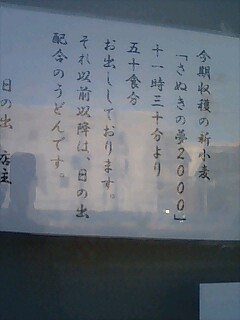 今期収穫の新小麦
「さぬきの夢2000」
十一時三十分より
五十食分
お出ししております。
それ以前以降は、日の出
配合のうどんです。
日の出 店主